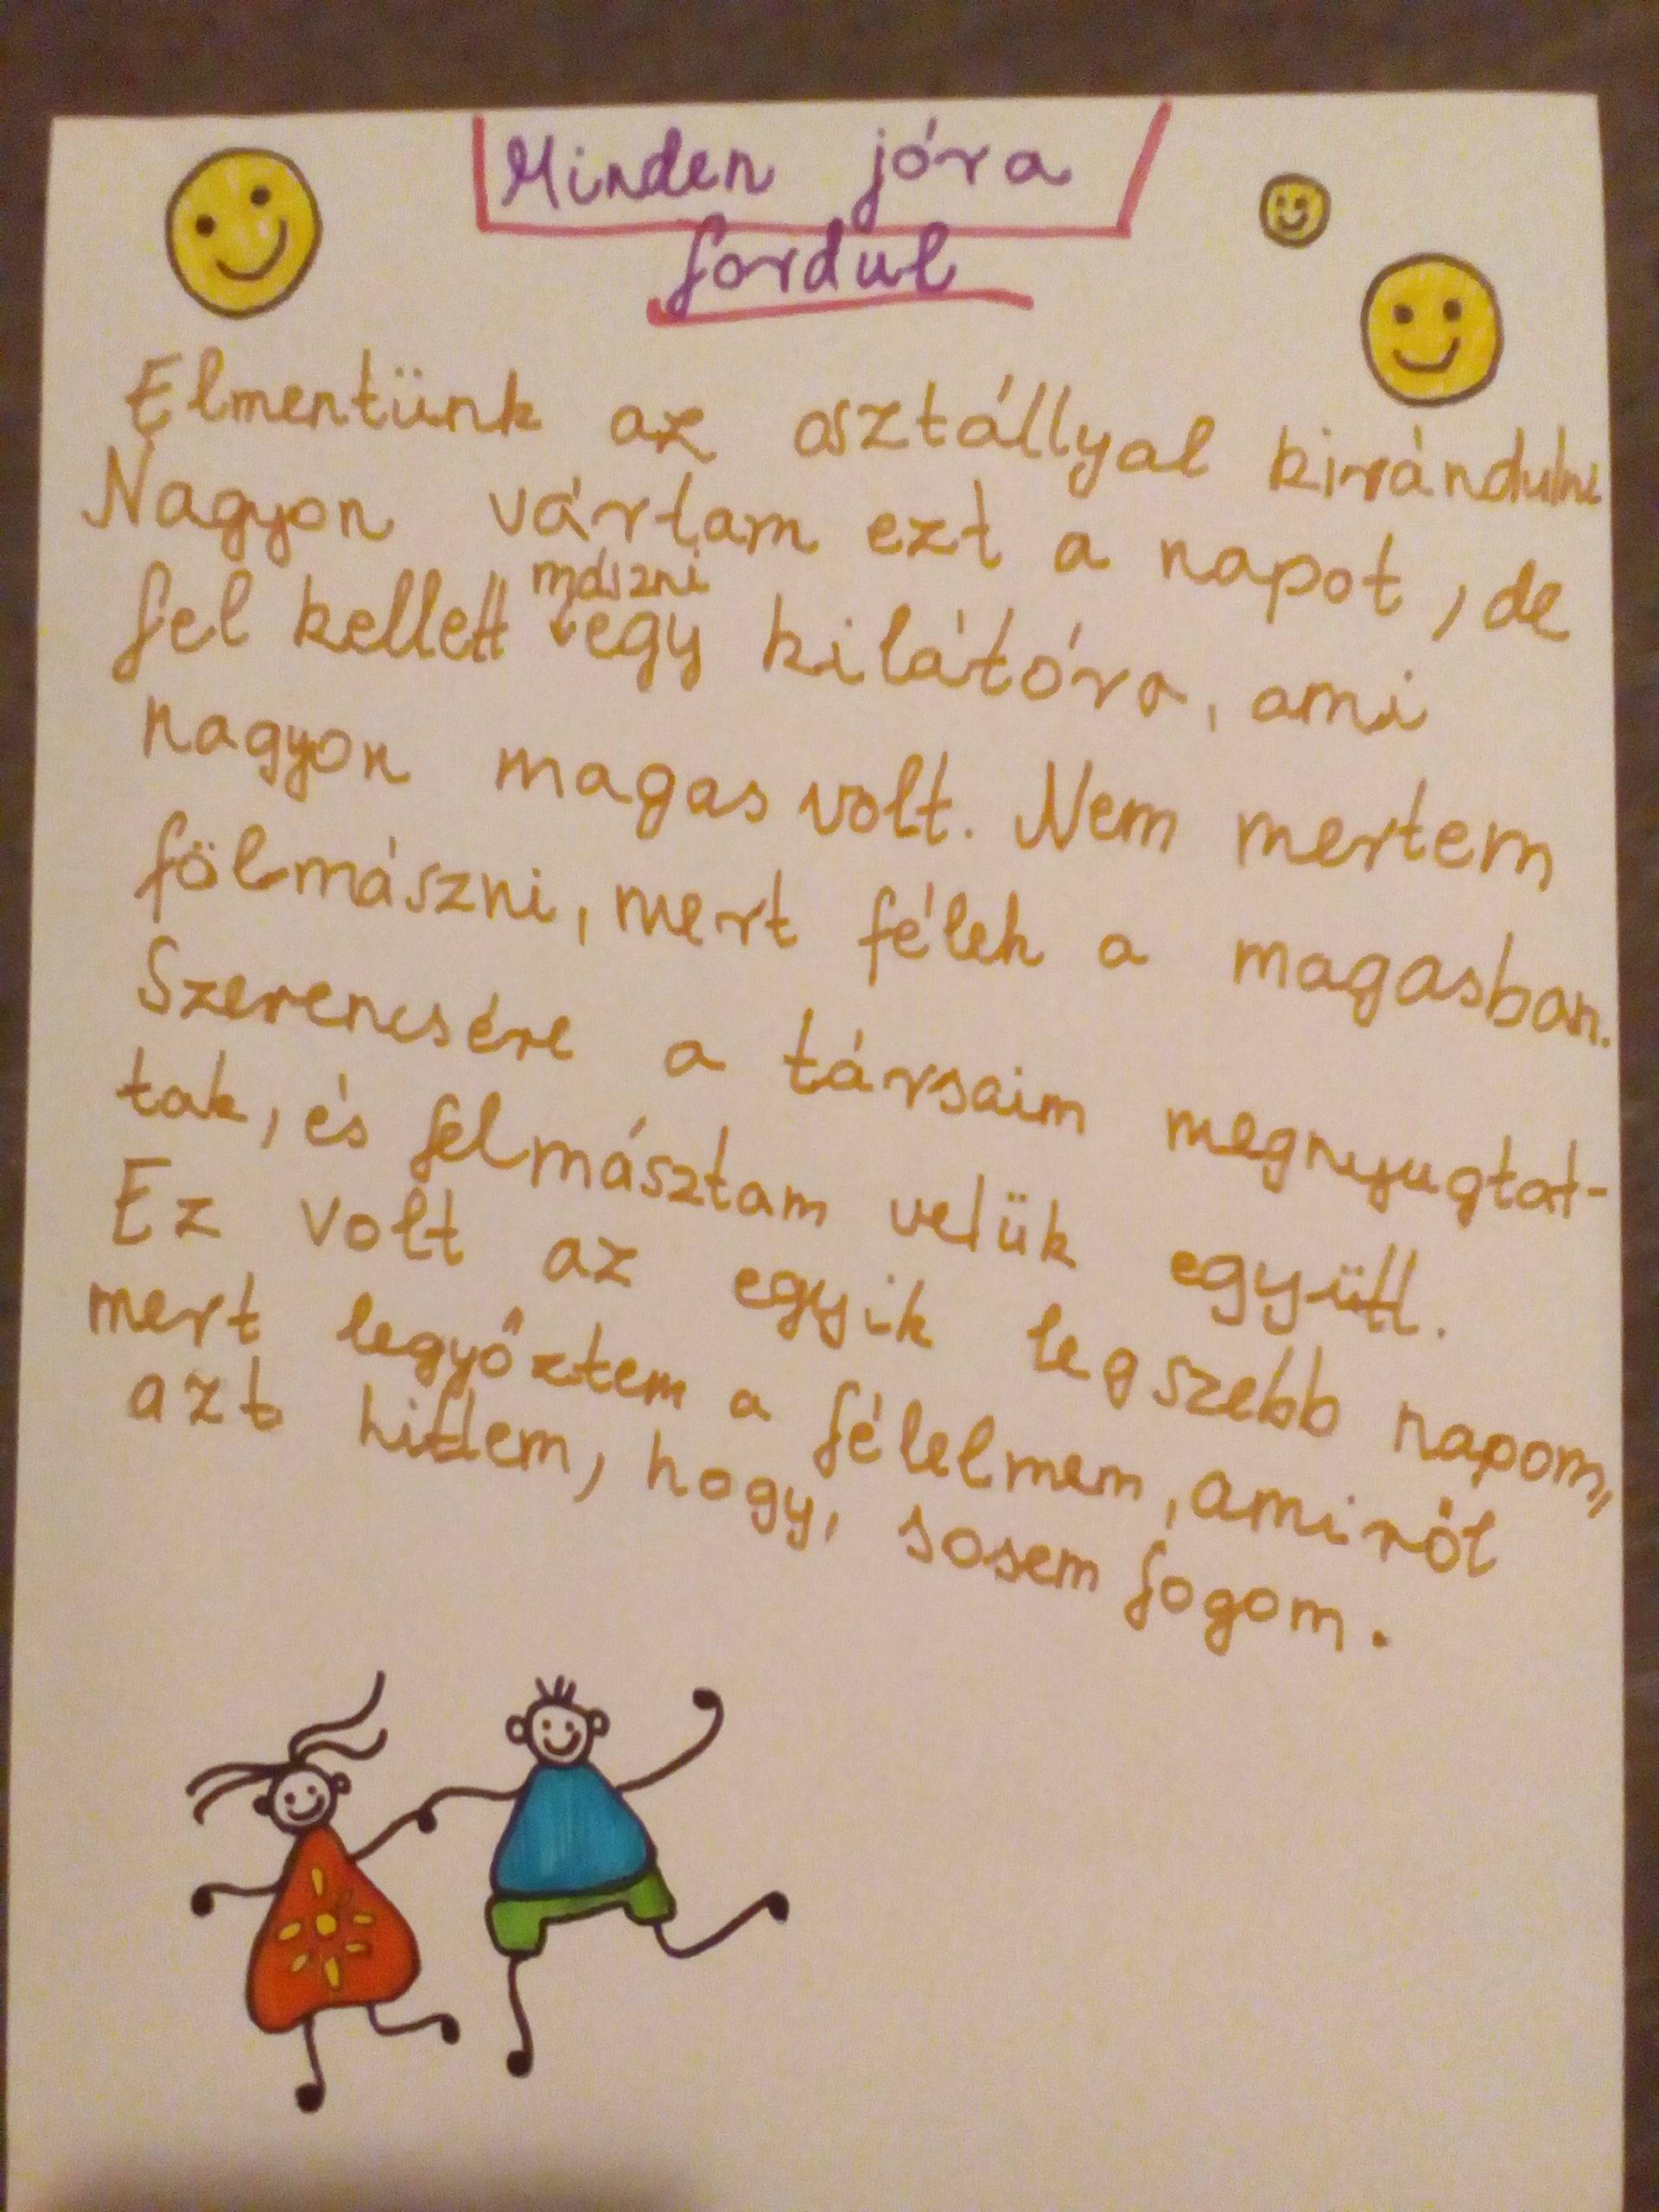 Minden jóra
fordul
Elmentünk az osztállyal kirándulni
Nagyon vártam ezt a napot, de
mászni
fel kellett egy kilátóra, ami
nagyon magas volt. Nem mertem
fölmászni, mert félek a magasban.
Szerencsére a társaim megnyugtat-
tak, és felmásztam velük együtt.
Ez volt az egyik legszebb napom,
mert legyőztem a félelmem, amiről
azt hittem, hogy, sosem fogom.